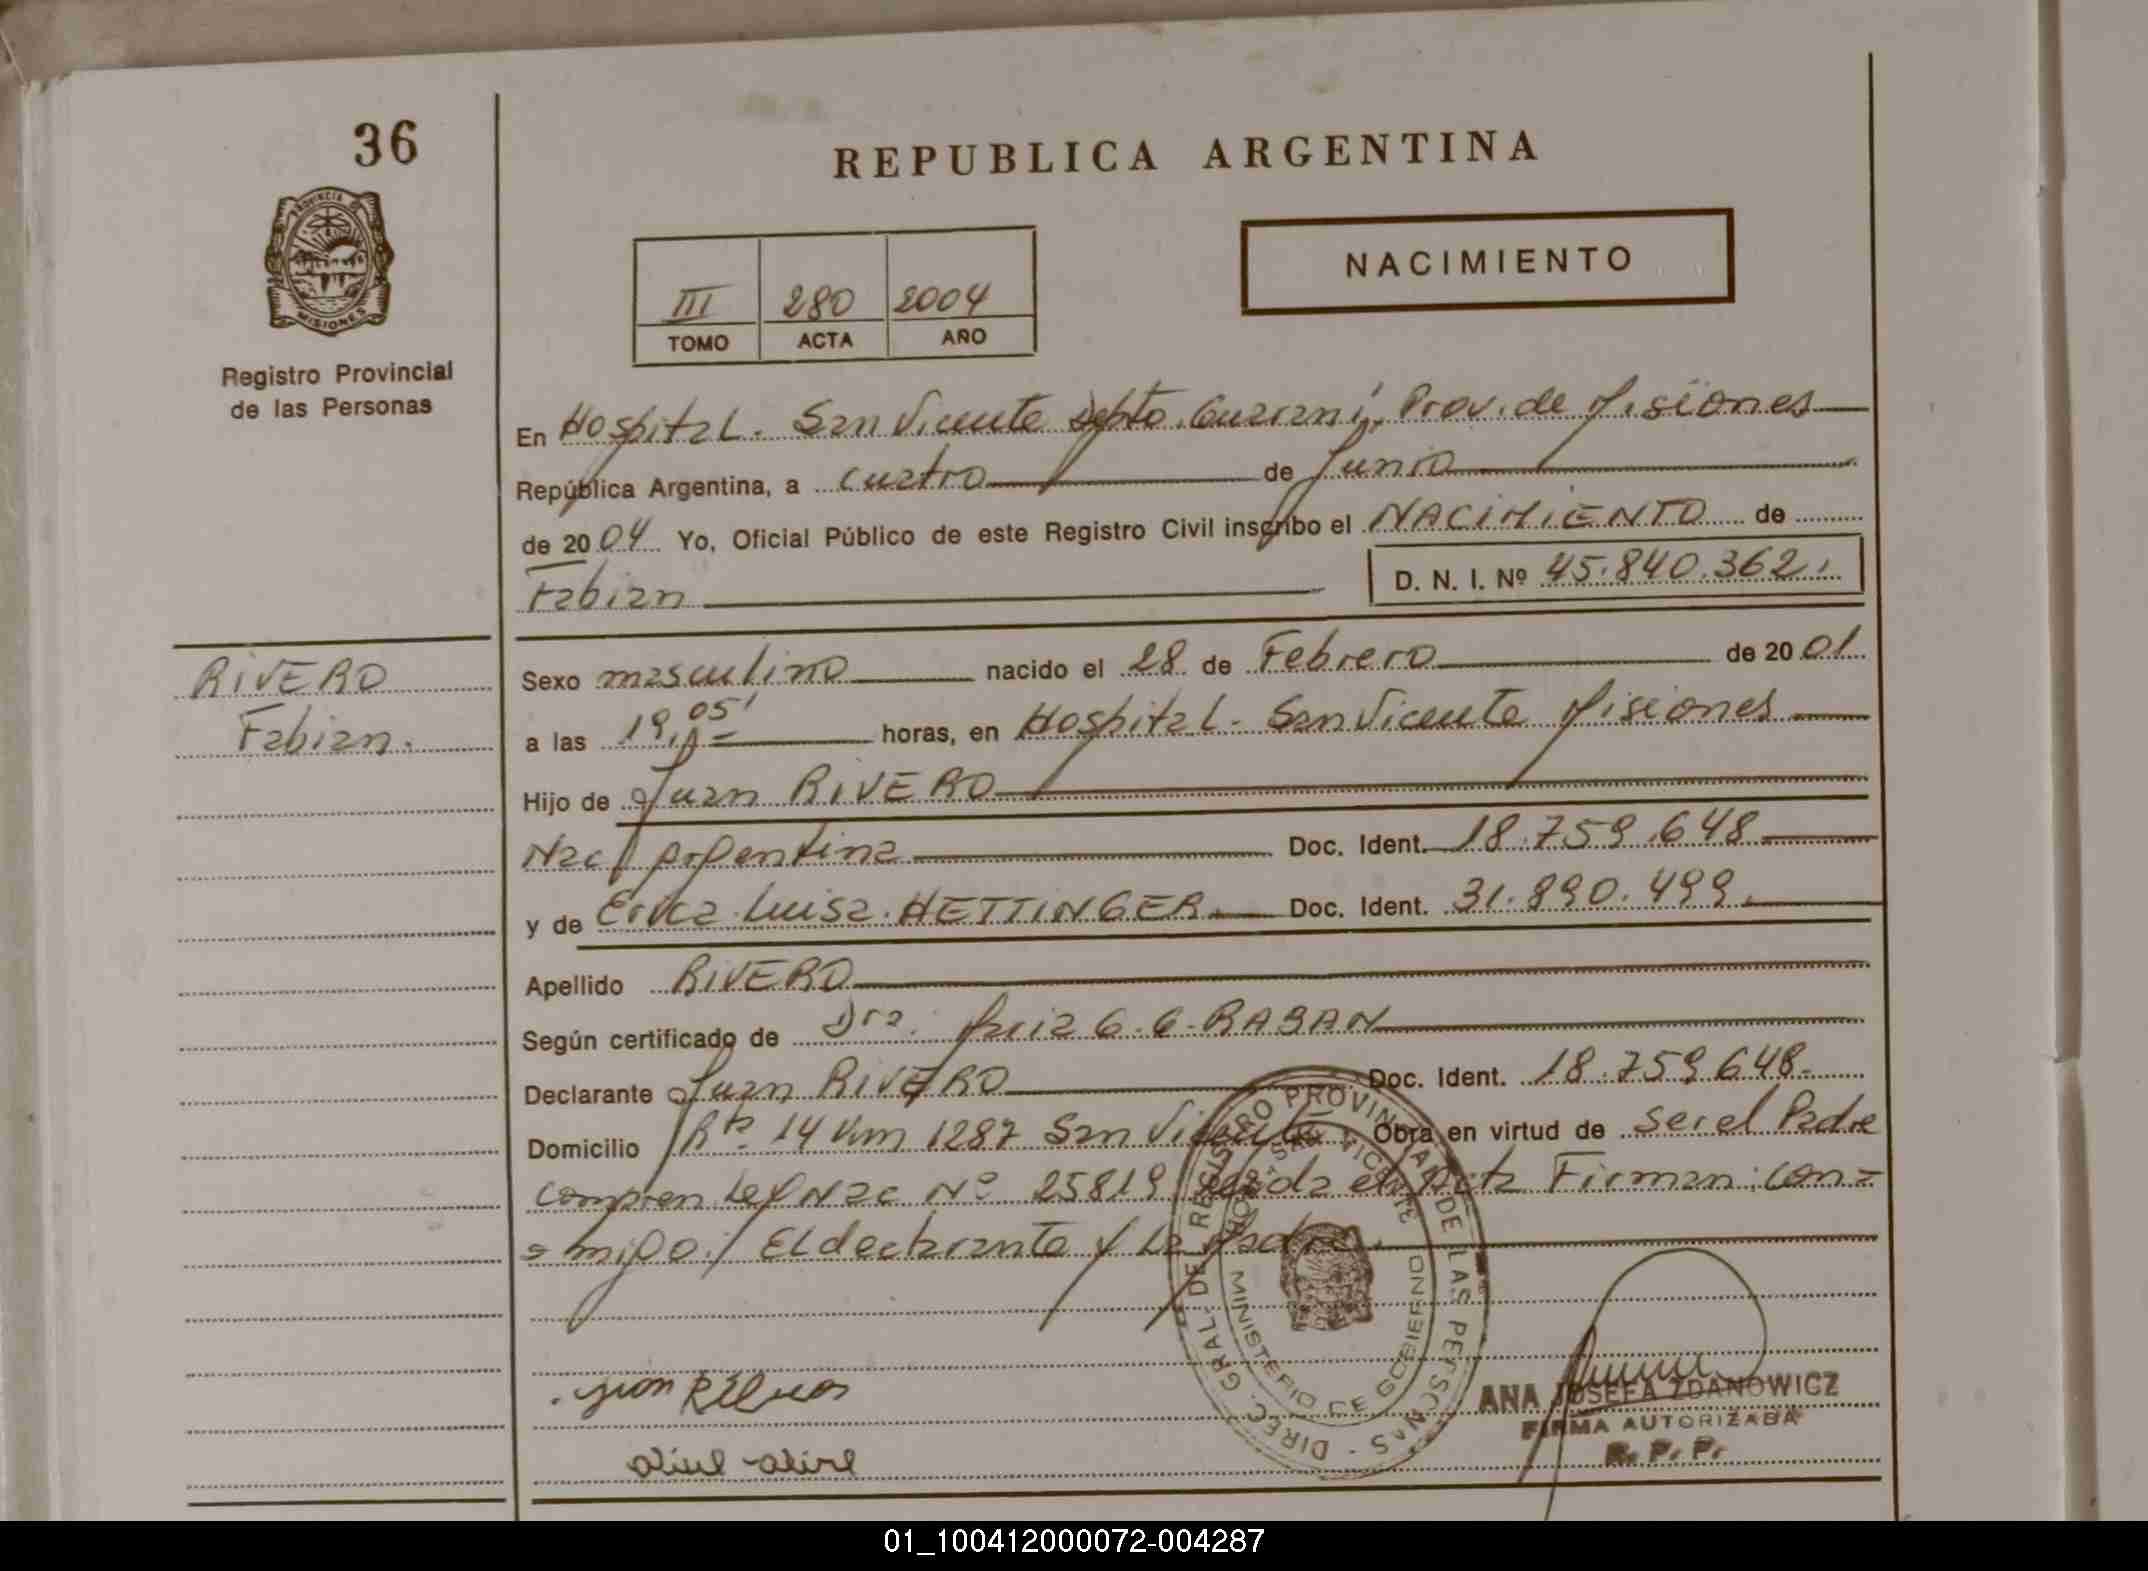 36
REPUBLICA ARGENTINA
PROVINCIA DE
MISIONES
NACIMIENTO
III 280 2004
TOMO ACTA AÑO
Registro Provincial
de las Personas
En Hospital. San Vicente Depto. Guaraní, Prov. de Misiones
República Argentina, a cuatro de Junio
de 2004 Yo, Oficial Público de este Registro Civil inscribo el NACIMIENTO de
Fabian D. N. I. Nº 45.840.362.
RIVERO
Fabian.
Sexo masculino nacido el 28 de Febrero de 2001
a las 19,05' horas, en Hospital. San Vicente Misiones
Hijo de Juan RIVERO
Nac/ Argentina Doc. Ident. 18.759.648
y de Erica Luisa HETTINGER Doc. Ident. 31.890.499.
Apellido RIVERO
Según certificado de Dra. G. G. BABAN
Declarante Juan RIVERO Doc. Ident. 18.759.648.
Domicilio Rta. 14 Km 1287 San Vicente. Obra en virtud de ser el Padre
Ley Nac Nº 25819 Leida el Acta Firman: con=
=migo:/ El declarante y La Madre.
DIREC. GRAL. DE REGISTRO PROVINCIAL DE LAS PERSONAS
SAN VICENTE
MINISTERIO DE GOBIERNO
ANA JOSEFA ZDANOWICZ
FIRMA AUTORIZADA
R. P. P.
01_100412000072-004287